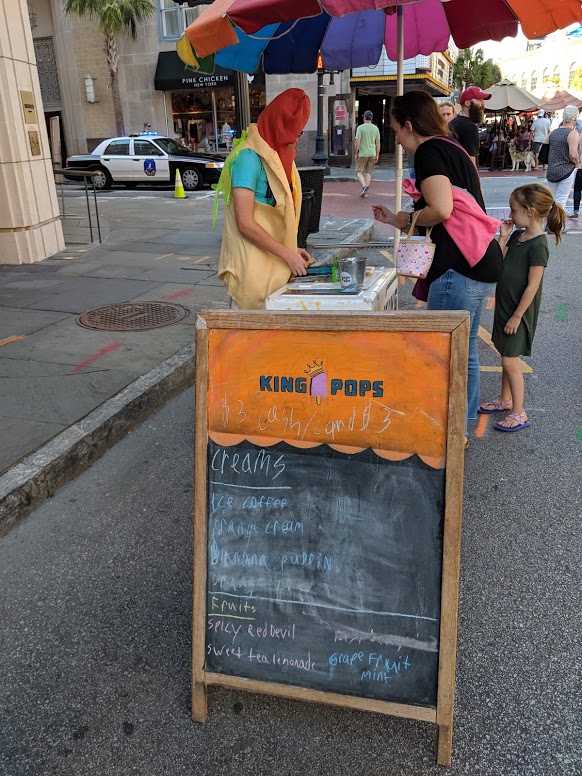 PINK CHICKEN
NEW YORK
KING POPS
$3 cash/card $3
creams
Ice coffee
orange cream
Banana puddin
Fruits
Spicy Red Devil
sweet tea lemonade
Grape Fruit
mint